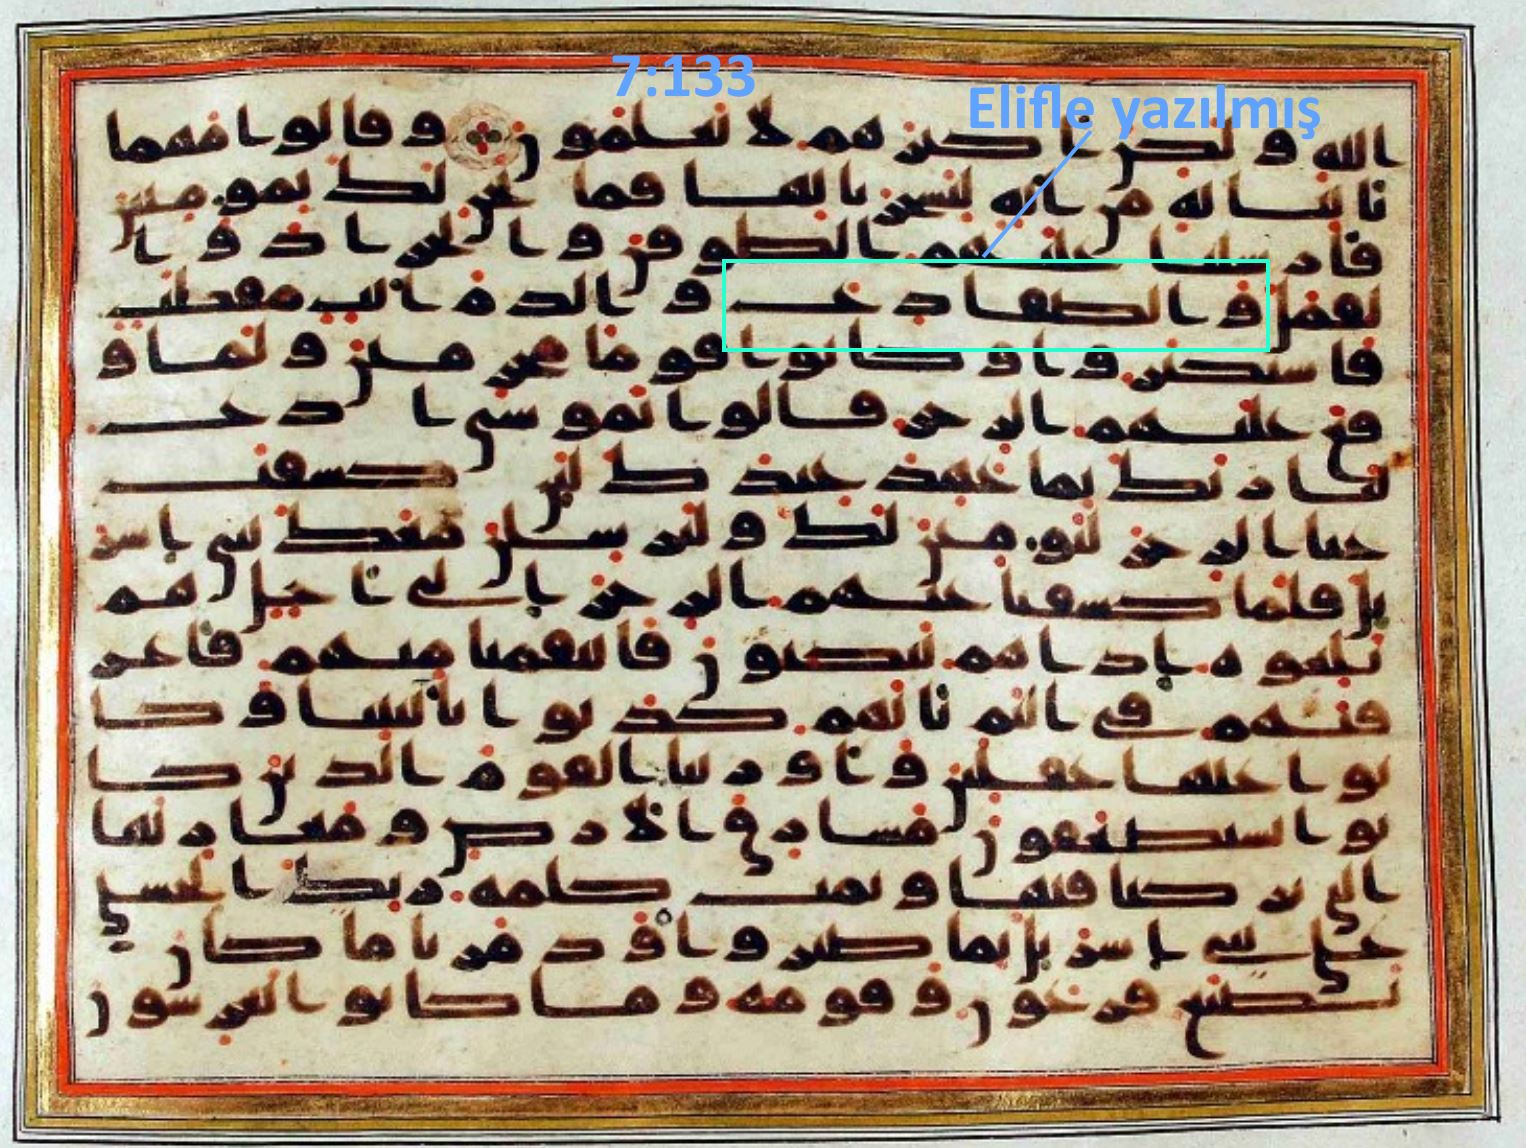 7:133
Elifle yazılmış
الله ولكن اكثرهم لا يعلمون وقالوا مهما
تاتنا به من ايه لتسحرنا بها فما نحن لك بمومنين
فارسلنا عليهم الطوفن والجراد وا
لقمل والضفادع والدم ايت مفصلت
فاستكبروا وكانوا قوما مجرمين ولما و
قع عليهم الرجز قالوا يموسى ادع
لنا ربك بما عهد عندك لئن كشفت
عنا الرجز لنومنن لك ولنرسلن معك بني اسر
يل فلما كشفنا عنهم الرجز الى اجل هم
بلغوه اذا هم ينكثون فانتقمنا منهم فاغر
قنهم في اليم بانهم كذبوا بايتنا وكا
نوا عنها غفلين واورثنا القوم الذين كا
نوا يستضعفون مشارق الارض ومغاربها
التي بركنا فيها وتمت كلمه ربك الحسنى
على بني اسريل بما صبروا ودمرنا ما كان
يصنع فرعون وقومه وما كانوا يعرشون